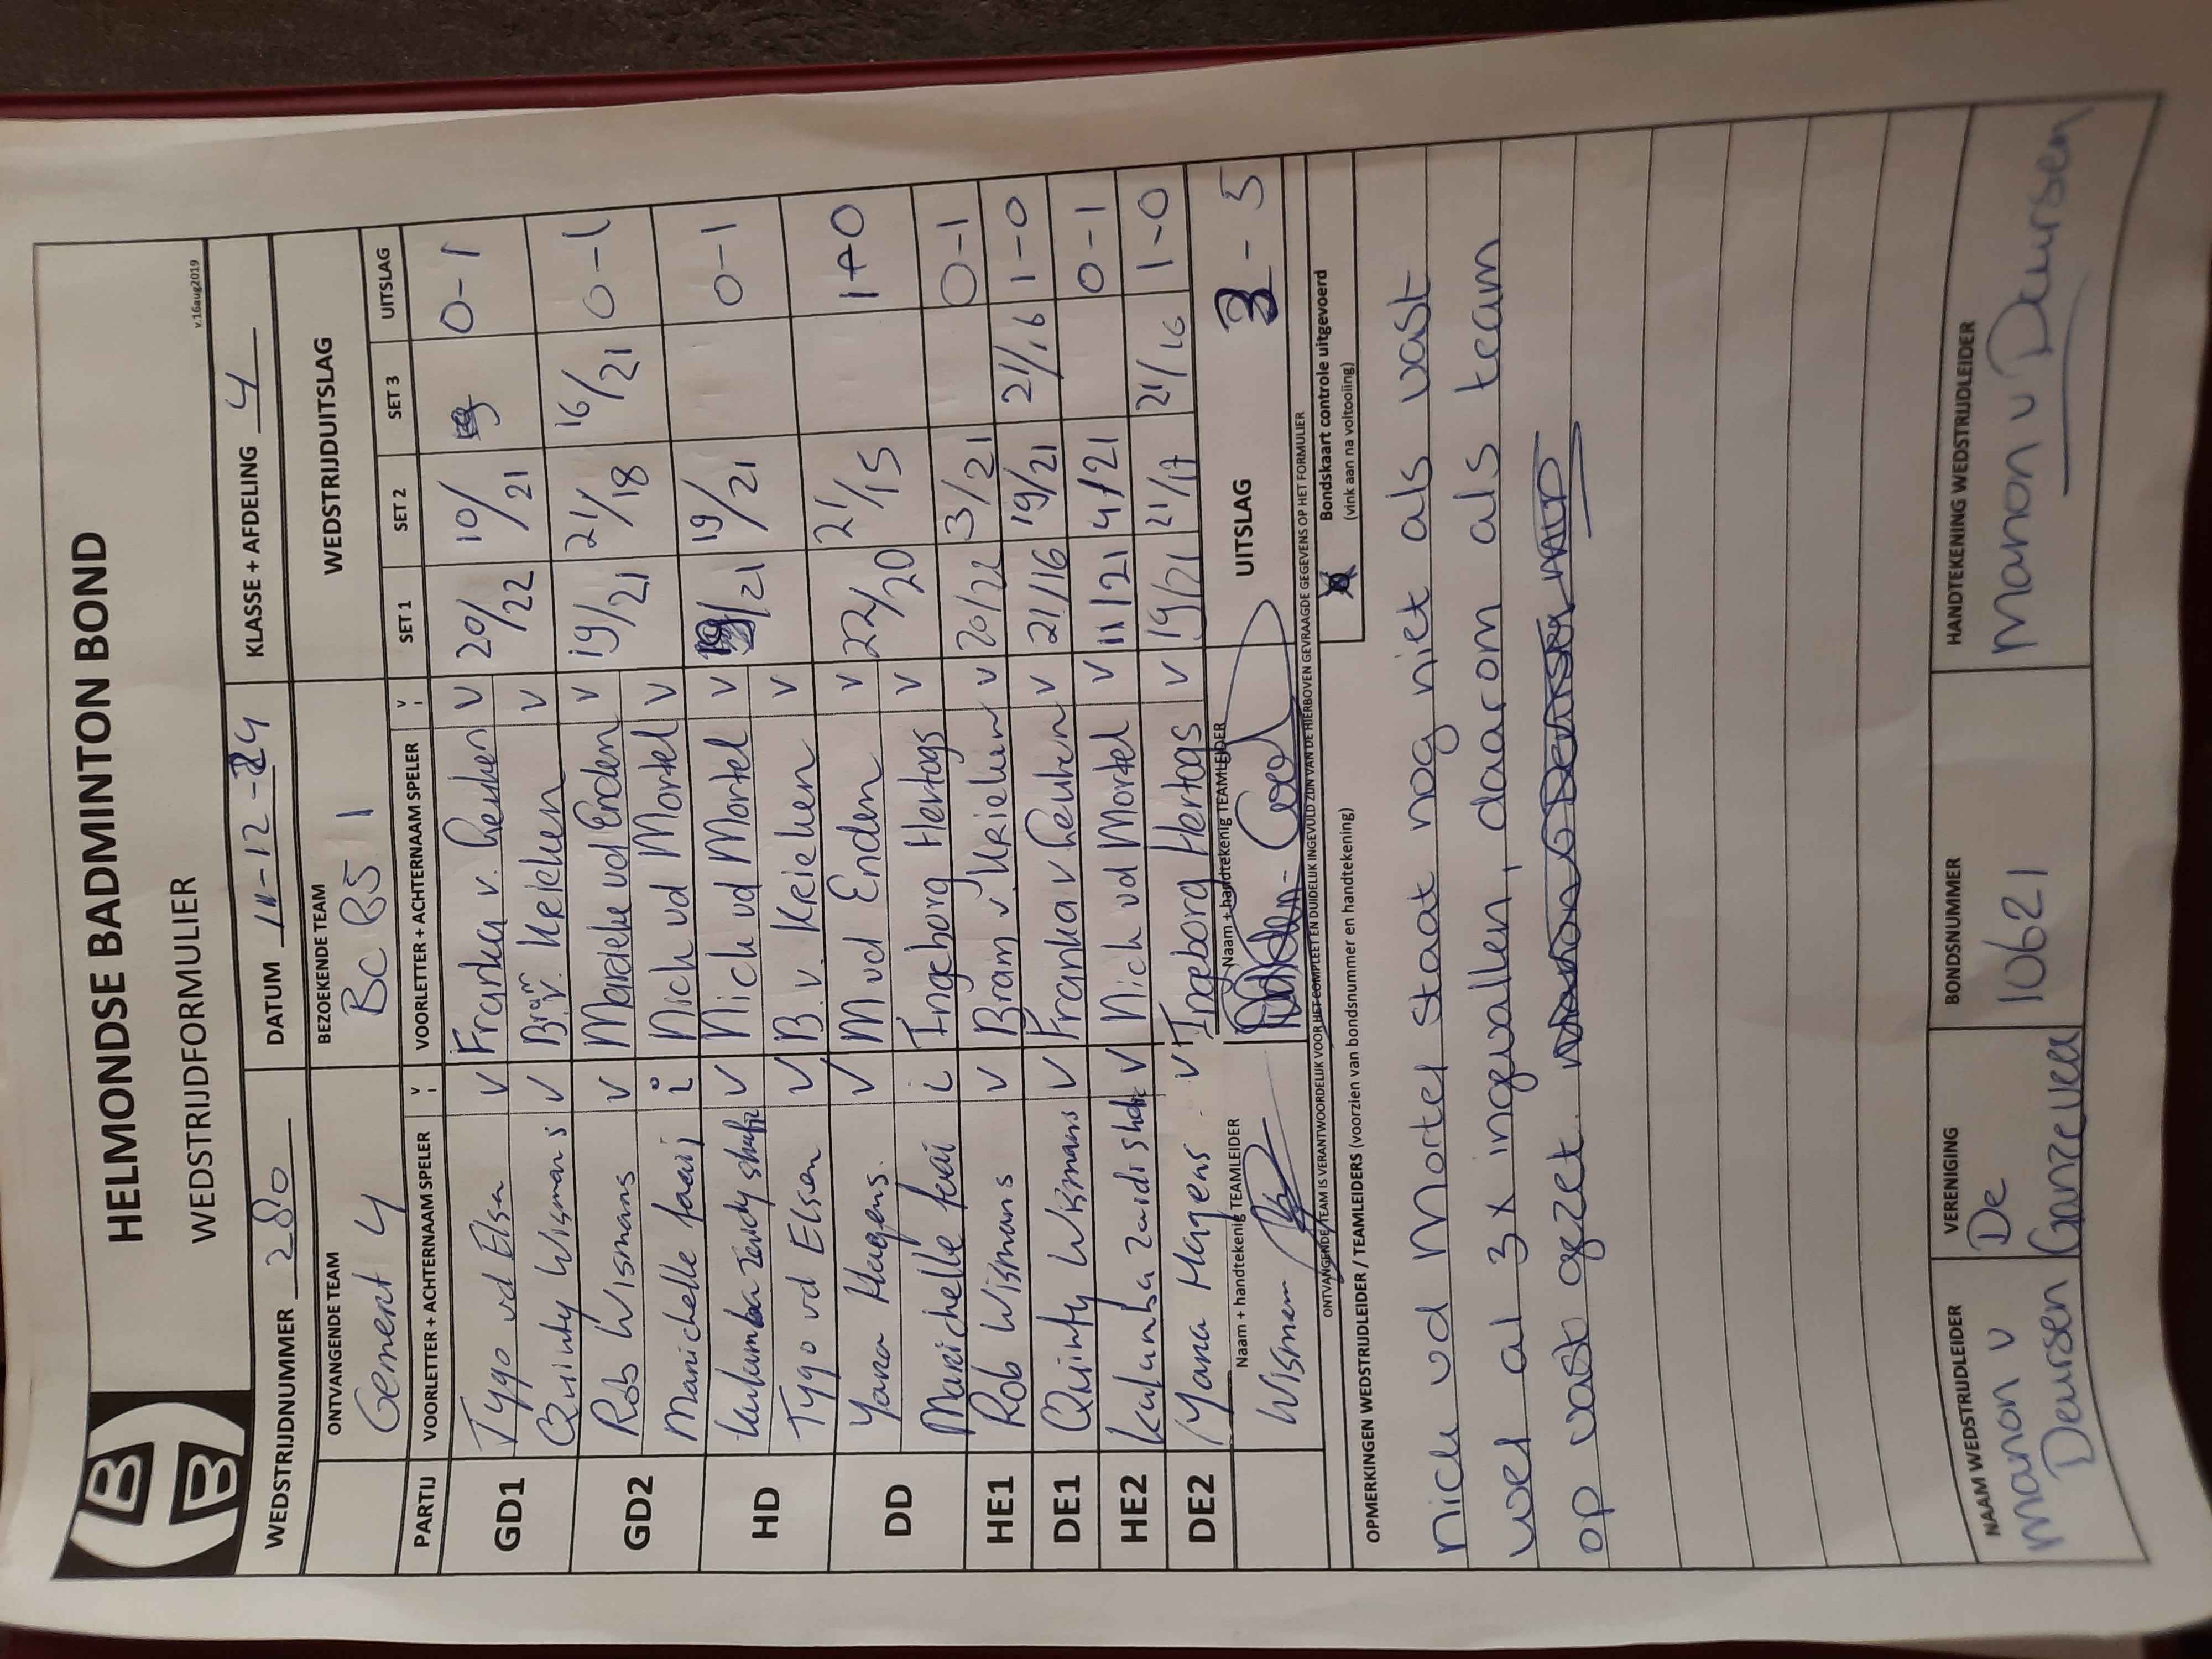 HELMONDSE BADMINTON BOND
WEDSTRIJDFORMULIER
v.16aug2019
WEDSTRIJDNUMMER 280 DATUM 11-12-24 KLASSE + AFDELING 4
ONTVANGENDE TEAM BEZOEKENDE TEAM WEDSTRIJDUITSLAG
Gemert 4 BC 85 1
PARTIJ VOORLETTER + ACHTERNAAM SPELER V I VOORLETTER + ACHTERNAAM SPELER V I SET 1 SET 2 SET 3 UITSLAG
GD1 Tygo vd Elsen V Franka v. Leuken V 20/22 10/21 0-1
Quinty Wismans V Bram v. Krieken V
GD2 Rob Wismans V Marieke vd Enden V 19/21 21/18 16/21 0-1
Marichelle i Nick vd Mortel V
HD V Nick vd Mortel V 19/21 19/21 0-1
Tygo vd Elsen V B. v. Krieken V
DD Yana Haegens V M vd Enden V 22/20 21/15 1-0
Marichelle i Ingeborg Hertogs V
HE1 Rob Wismans V Bram v. Krieken V 20/22 3/21 0-1
DE1 Quinty Wismans V Franka v Leuken V 21/16 19/21 21/16 1-0
HE2 V Nick vd Mortel V 11/21 4/21 0-1
DE2 Yana Haegens V Ingeborg Hertogs V 19/21 21/17 21/16 1-0
Naam + handtekenig TEAMLEIDER Naam + handtekenig TEAMLEIDER UITSLAG 3 - 5
Wismans
ONTVANGENDE TEAM IS VERANTWOORDELIJK VOOR HET COMPLEET EN DUIDELIJK INGEVULD ZIJN VAN DE HIERBOVEN GEVRAAGDE GEGEVENS OP HET FORMULIER
Bondskaart controle uitgevoerd
(vink aan na voltooiing)
OPMERKINGEN WEDSTRIJDLEIDER / TEAMLEIDERS (voorzien van bondsnummer en handtekening)
Nick vd Mortel staat nog niet als vast
wel al 3x ingevallen, daarom als team
op vast gezet.
NAAM WEDSTRIJDLEIDER VERENIGING BONDSNUMMER HANDTEKENING WEDSTRIJDLEIDER
Manon v De 10621 Manon v Deursen
Deursen Ganzeveer